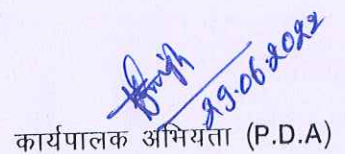 29.06.2022
कार्यपालक अभियंता (P.D.A)